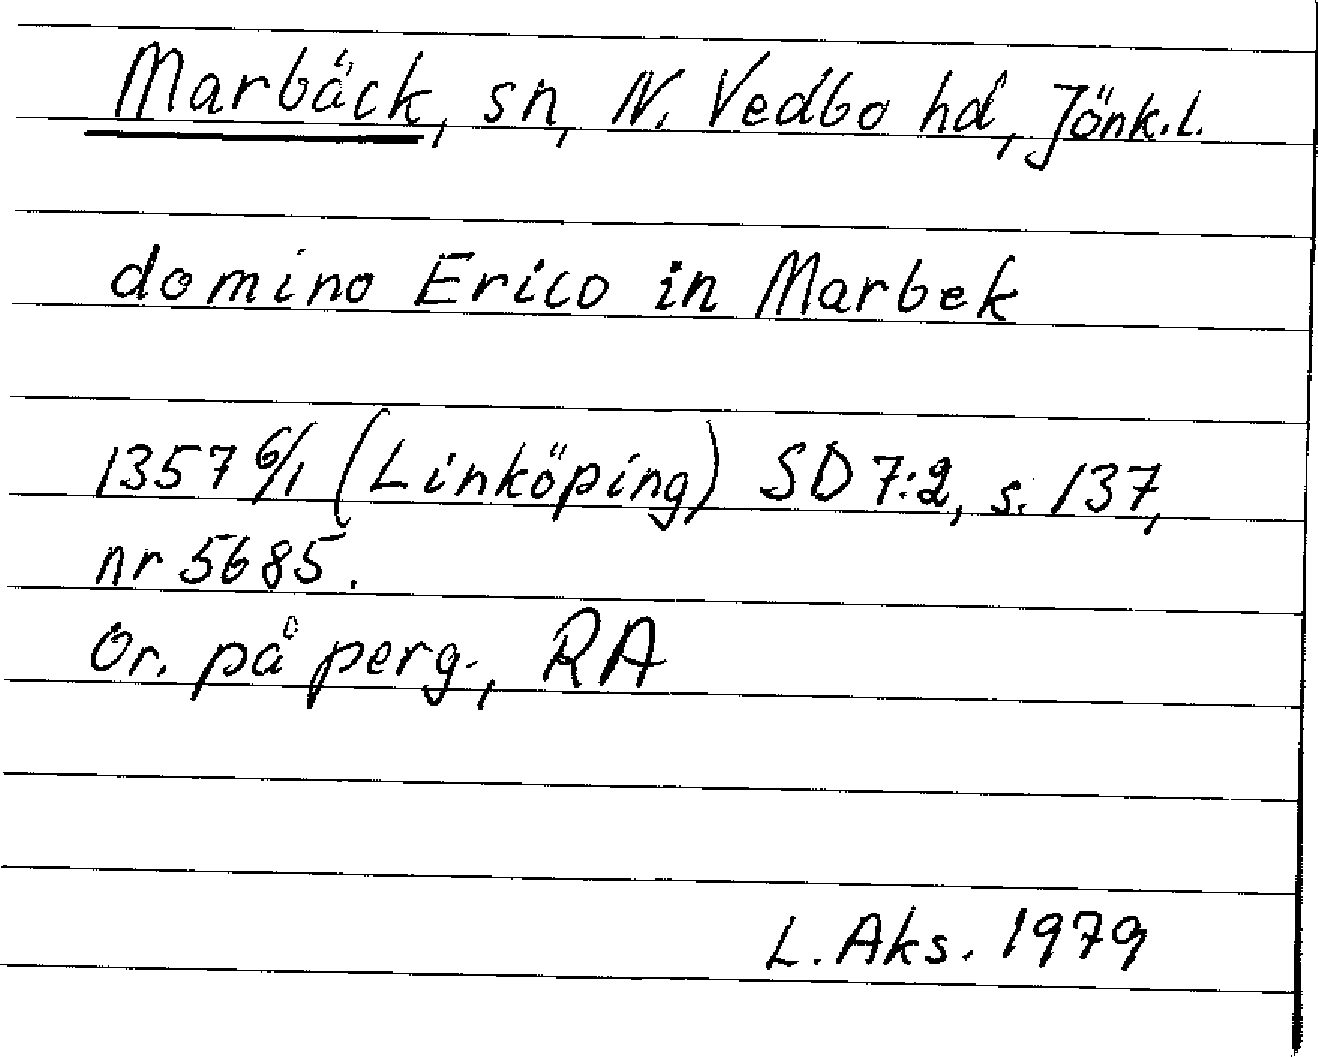 Marbäck, sn, N. Vedbo hd, Jönk.l.
domino Erico in Marbek
1357 6/1 (Linköping) SD 7:2, s. 137,
nr 5685.
Or. på perg., RA
L. Aks. 1979